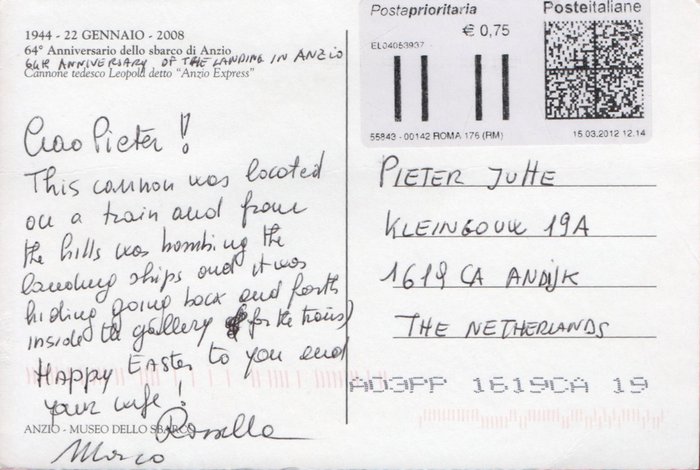 1944 - 22 GENNAIO - 2008
64° Anniversario dello sbarco di Anzio
64TH ANNIVERSARY OF THE LANDING IN ANZIO
Cannone tedesco Leopold detto "Anzio Express"
Ciao Pieter!
This cannon was located
on a train and from
the hills was bombing the
landing ships and it was
hiding going back and forth
inside the gallery (for the trains)
Happy Easter to you and
your wife!
Rossella
Marco
ANZIO - MUSEO DELLO SBARCO
Postaprioritaria
Posteitaliane
€ 0,75
EL04053937
55843 - 00142 ROMA 176 (RM)
15.03.2012 12.14
PIETER JUTTE
KLEINGOUW 19A
1619 CA ANDIJK
THE NETHERLANDS
A03PP 1619CA 19